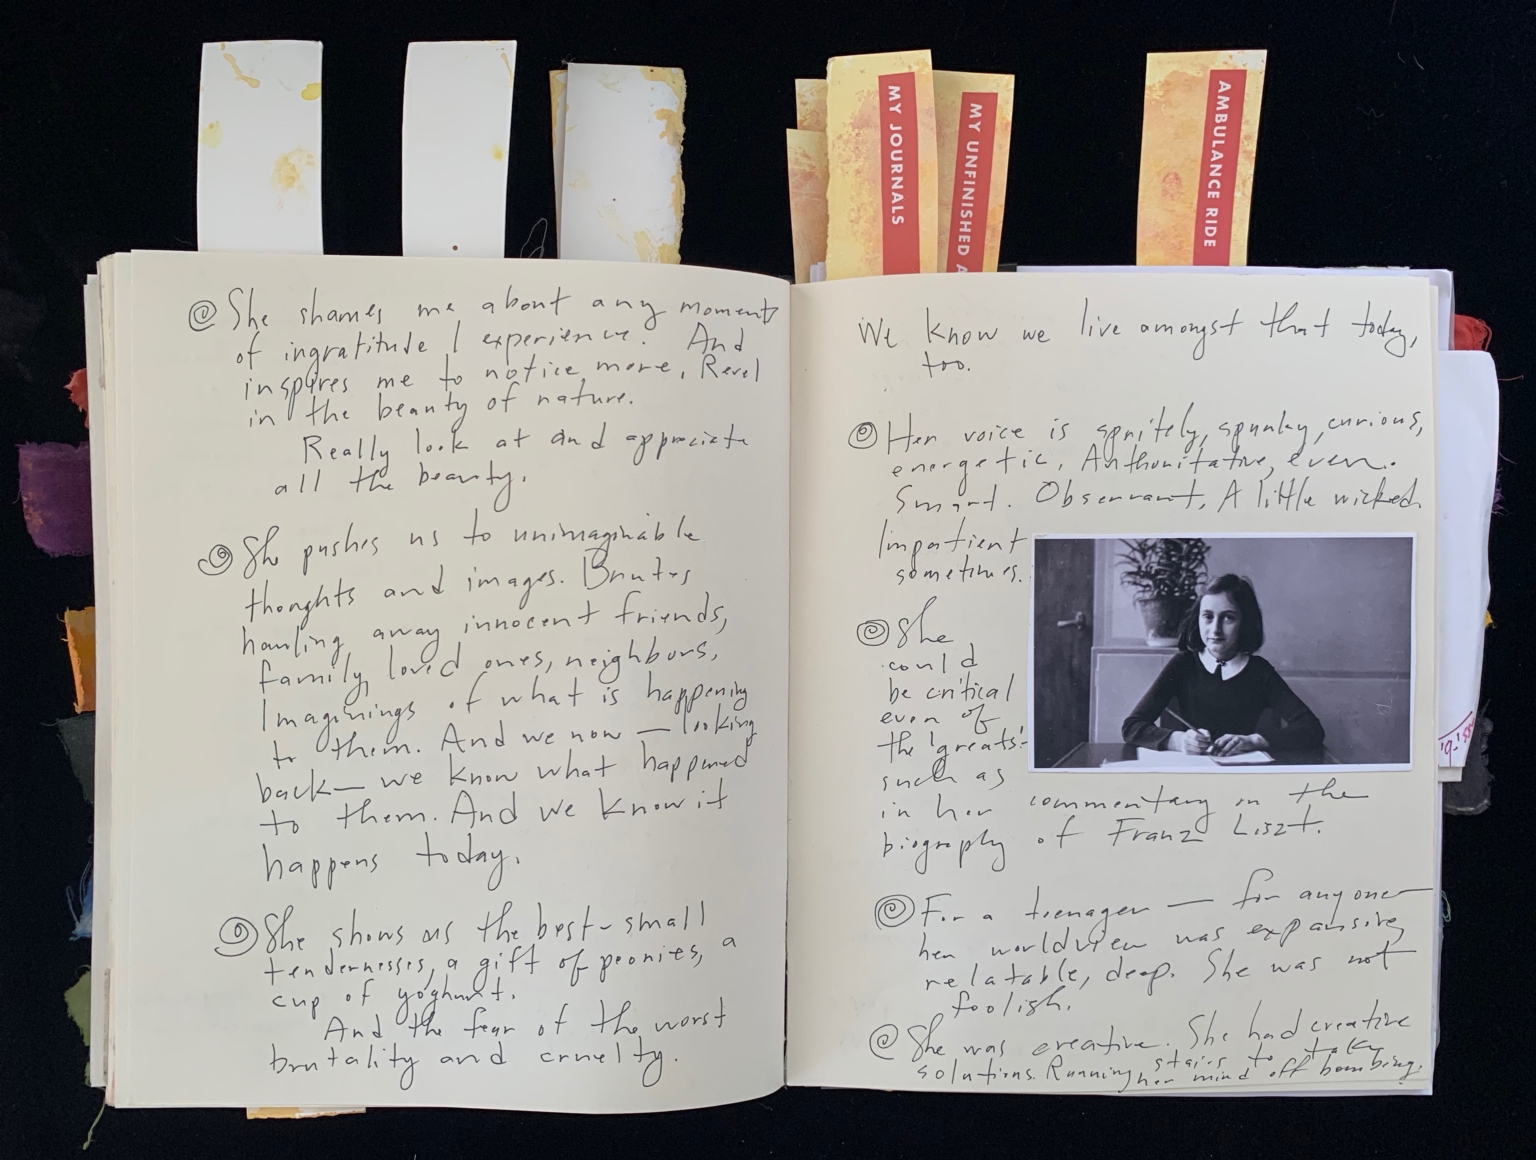 MY JOURNALS
MY UNFINISHED A
AMBULANCE RIDE
She shames me about any moment
of ingratitude I experience. And
inspires me to notice more, Revel
in the beauty of nature.
Really look at and appreciate
all the beauty.
She pushes us to unimaginable
thoughts and images. Brutes
hauling away innocent friends,
family, loved ones, neighbors,
Imaginings of what is happening
to them. And we now — looking
back — we know what happened
to them. And we know it
happens today.
She shows us the best - small
tendernesses, a gift of peonies, a
cup of yoghurt.
And the fear of the worst
brutality and cruelty.
We know we live amongst that today,
too.
Her voice is spritely, spunky, curious,
energetic. Authoritative, even.
Smart. Observant, A little wicked.
Impatient
sometimes.
She
could
be critical
even of
the 'greats'-
such as
in her commentary on the
biography of Franz Liszt.
For a teenager — for anyone —
her worldview was expansive,
relatable, deep. She was not
foolish.
She was creative. She had creative
solutions. Running stairs to take
her mind off bombing.